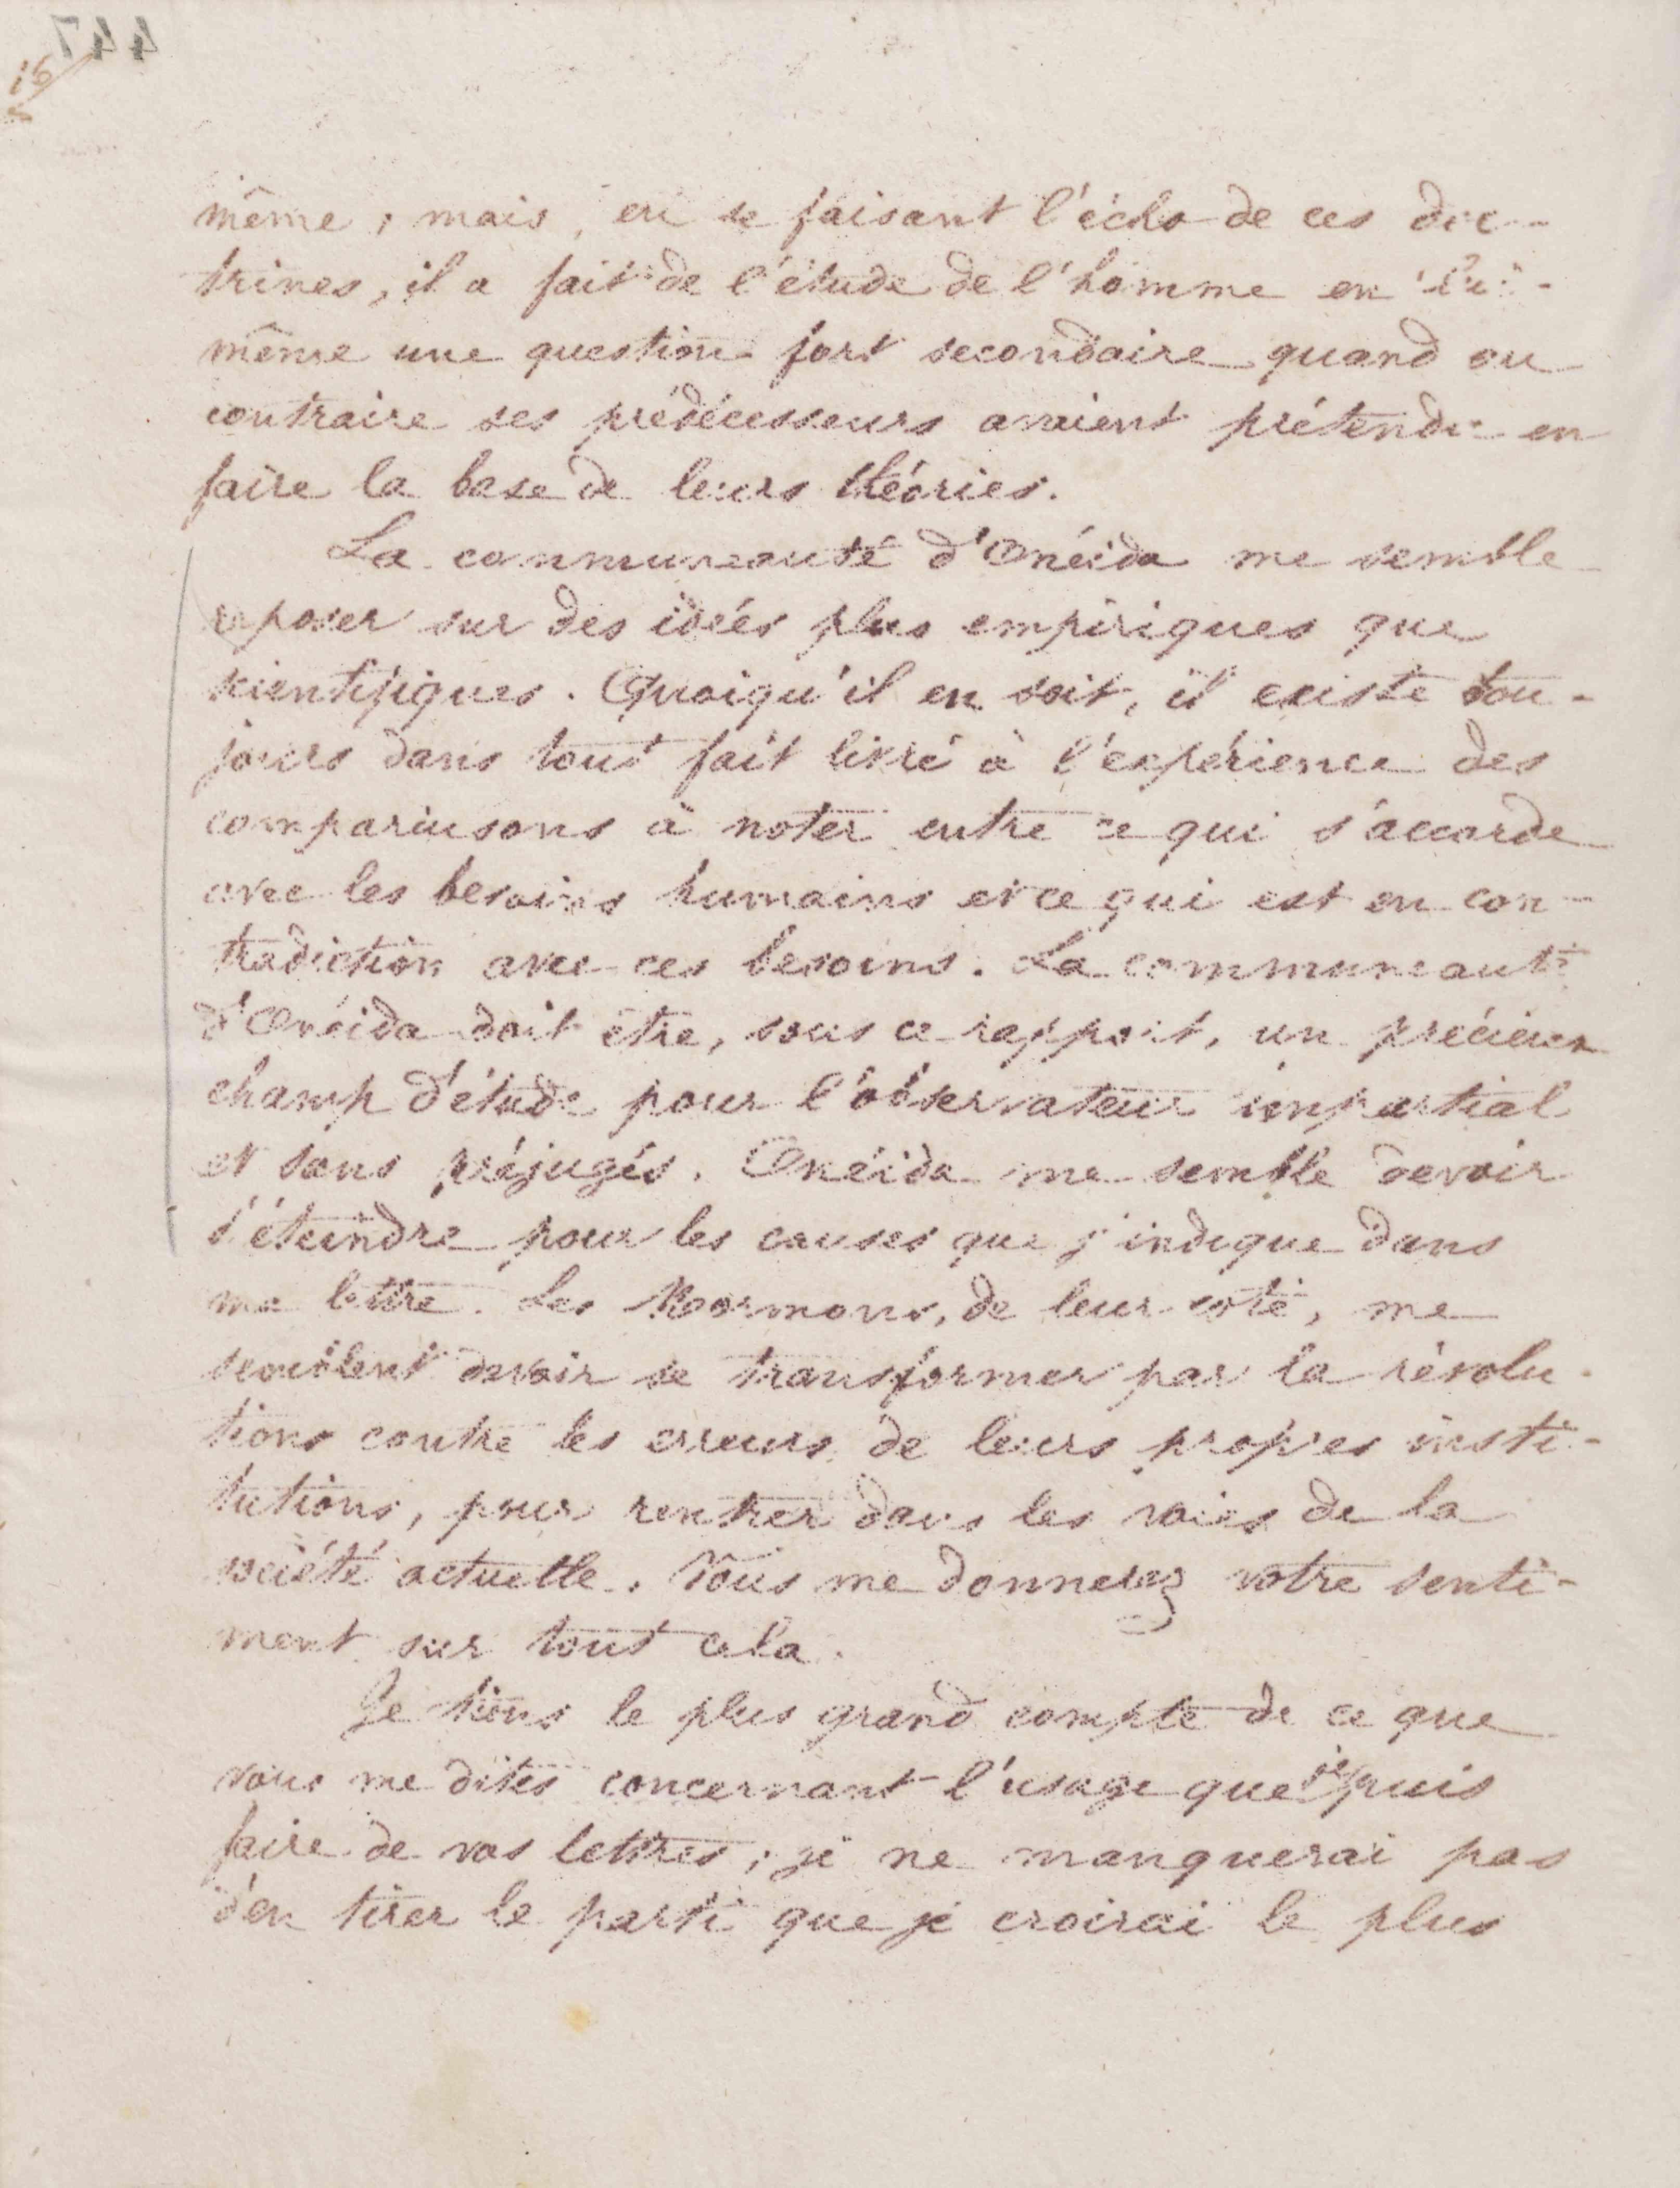 447
même ; mais, en se faisant l'écho de ces doc-
trines, il a fait de l'étude de l'homme en lui-
même une question fort secondaire quand au
contraire ses prédécesseurs avaient prétendu en
faire la base de leurs théories.
La communeauté d'Onéida me semble
reposer sur des idées plus empiriques que
scientifiques. Quoiqu'il en soit, il existe tou-
jours dans tout fait livré à l'expérience des
compariusons à noter entre ce qui s'accorde
avec les besoins humains et ce qui est en con-
tradiction avec ces besoins. La communeauté
d'Onéida doit être, sous ce rapport, un précieux
champ d'étude pour l'observateur impartial
et sans préjugés. Onéida me semble devoir
s'éteindre pour les causes que j'indique dans
ma lettre. Les Mormons, de leur coté, me
semblent devoir se transformer par la révolu-
tions contre les erreurs de leurs propres insti-
tutions, pour rentrer dans les voies de la
société actuelle. Vous me donnerez votre senti-
ment sur tout cela.
Je tiens le plus grand compte de ce que
vous me dites concernant l'usage que je puis
faire de vos lettres ; je ne manquerai pas
d'en tirer le parti que je croirai le plus